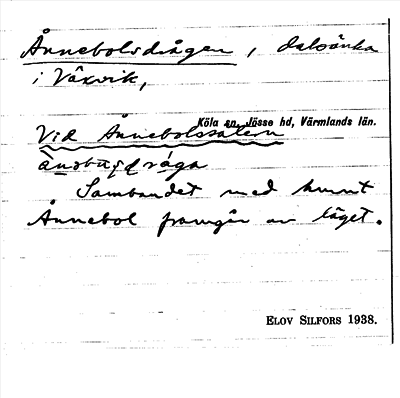 Ånnebolsdrågen, dalsänka
i Växvik,
Köla sn, Jösse hd, Värmlands län.
Vid Ånnebolssätern
Sambandet med hmnt
Ånnebol framgår av läget.
ELOV SILFORS 1938.